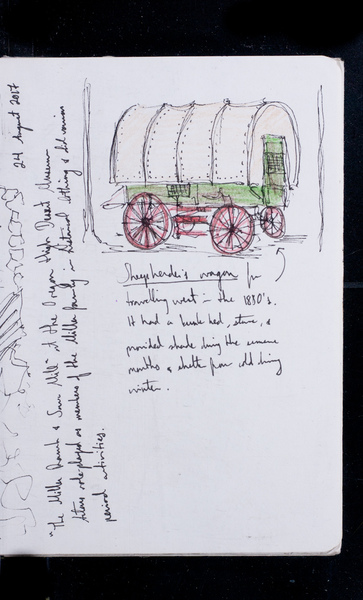 24 August 2017
"The Miller Ranch & Saw Mill" at the Oregon High Desert Museum
role played as members of the Miller family in historical clothing &
period activities.
Sheepherder's wagon for
travelling west in the 1880's.
It had a bunk bed, stove, &
provided shade during the summer
months & shelter from cold during
winter.